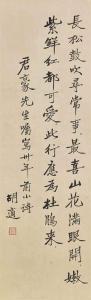 長松鼓吹尋常事最喜山花滿眼開嫩
紫鮮紅都可愛此行應為杜鵑來
君豪先生囑寫卅年前小詩
胡適